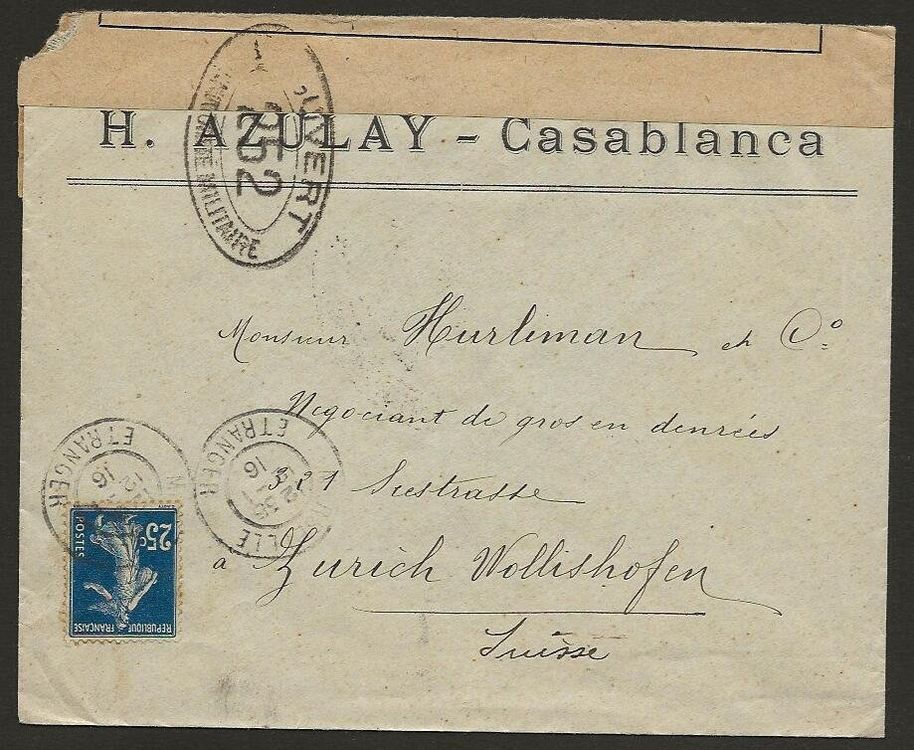 H. AZULAY - Casablanca
OUVERT
252
L'AUTORITÉ MILITAIRE
Monsieur Hurliman et Cº
Négociant de gros en denrées
321 Seestrasse
à Zurich Wollishofen
Suisse
ETRANGER
16
ETRANGER
16
25c
POSTES
REPUBLIQUE FRANÇAISE